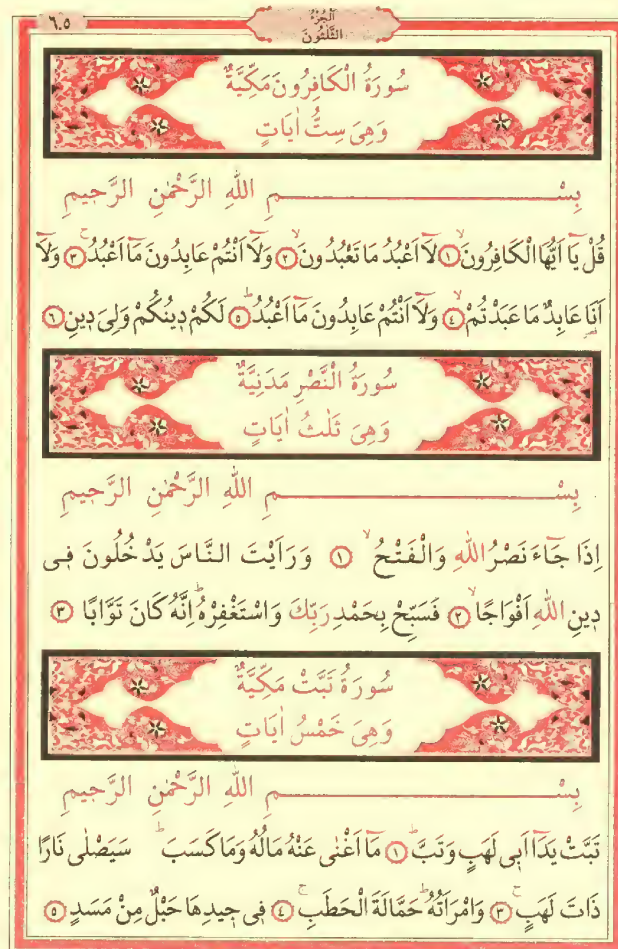 ٦٠٥
اَلْجُزْءُ
الثَّلٰثُونَ
سُورَةُ الْكَافِرُونَ مَكِّيَّةٌ
وَهِىَ سِتُّ اٰيَاتٍ
بِسْمِ اللّٰهِ الرَّحْمٰنِ الرَّحِيمِ
قُلْ يَٓا اَيُّهَا الْكَافِرُونَۙ ﴿١﴾ لَٓا اَعْبُدُ مَا تَعْبُدُونَۙ ﴿٢﴾ وَلَٓا اَنْتُمْ عَابِدُونَ مَٓا اَعْبُدُۚ ﴿٣﴾ وَلَٓا
اَنَا۬ عَابِدٌ مَا عَبَدْتُمْۙ ﴿٤﴾ وَلَٓا اَنْتُمْ عَابِدُونَ مَٓا اَعْبُدُۜ ﴿٥﴾ لَكُمْ دِينُكُمْ وَلِىَ دِينِ ﴿٦﴾
سُورَةُ النَّصْرِ مَدَنِيَّةٌ
وَهِىَ ثَلٰثُ اٰيَاتٍ
بِسْمِ اللّٰهِ الرَّحْمٰنِ الرَّحِيمِ
اِذَا جَٓاءَ نَصْرُ اللّٰهِ وَالْفَتْحُۙ ﴿١﴾ وَرَاَيْتَ النَّاسَ يَدْخُلُونَ فِى
دِينِ اللّٰهِ اَفْوَاجًاۙ ﴿٢﴾ فَسَبِّحْ بِحَمْدِ رَبِّكَ وَاسْتَغْفِرْهُۜ اِنَّهُ كَانَ تَوَّابًا ﴿٣﴾
سُورَةُ تَبَّتْ مَكِّيَّةٌ
وَهِىَ خَمْسُ اٰيَاتٍ
بِسْمِ اللّٰهِ الرَّحْمٰنِ الرَّحِيمِ
تَبَّتْ يَدَٓا اَبِى لَهَبٍ وَتَبَّۜ ﴿١﴾ مَٓا اَغْنٰى عَنْهُ مَالُهُ وَمَا كَسَبَۜ سَيَصْلٰى نَارًا
ذَاتَ لَهَبٍۚ ﴿٣﴾ وَامْرَاَتُهُۜ حَمَّالَةَ الْحَطَبِۚ ﴿٤﴾ فِى جِيدِهَا حَبْلٌ مِنْ مَسَدٍ ﴿٥﴾